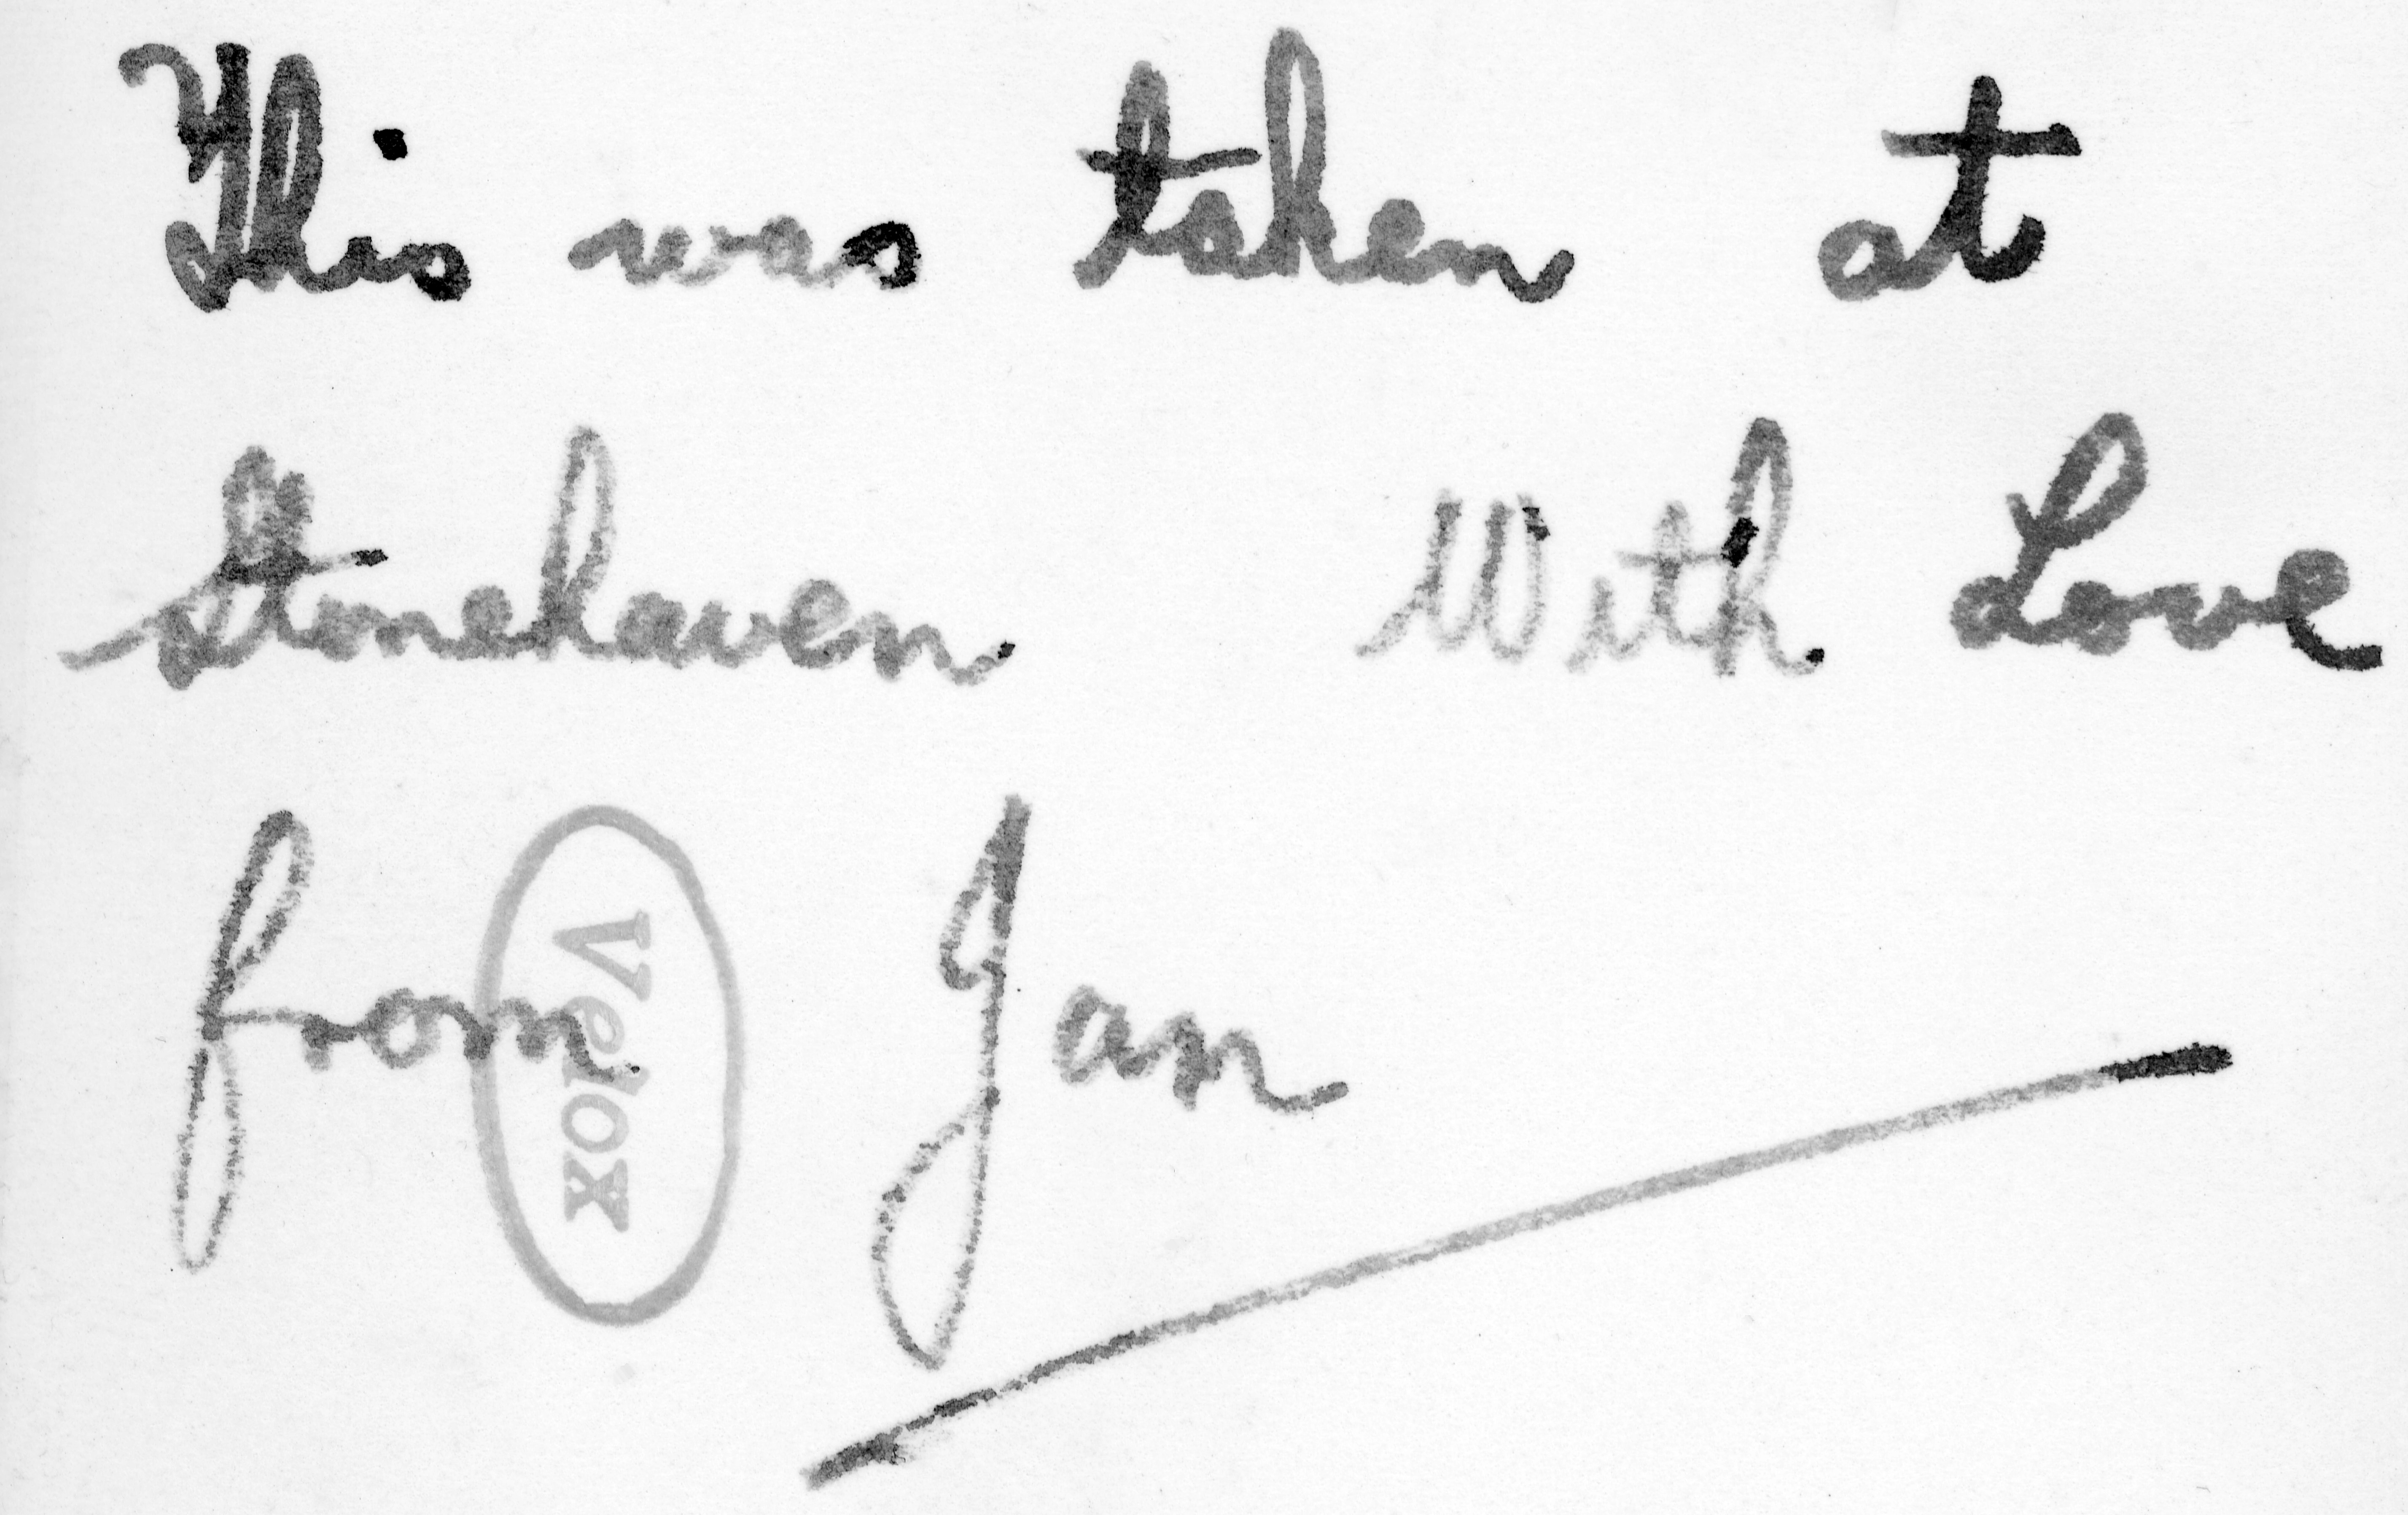 This was taken at
Stonehaven With Love
from Jan
Velox